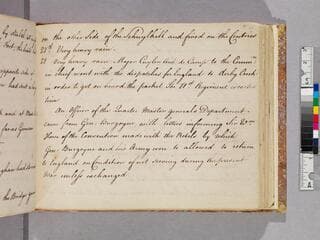 on the other Side of the Schuylkill and fired on the Centries
28th Very heavy rain.
29 Very heavy rain. Major Cuyler Aid de Camp to the Comm.
in Chief went with the dispatches for England to Derby Creek
in order to get on board the packet the 10th Regiment escorted
him
An Officer of the Quarter Master general's Department
came from Genl Burgoyne with letters informing Sir Wm
Howe of the Convention made with the Rebels by which
Genl Burgoyne and his Army were to allowed to return
to England on Condition of not serving during the present
War unless exchanged